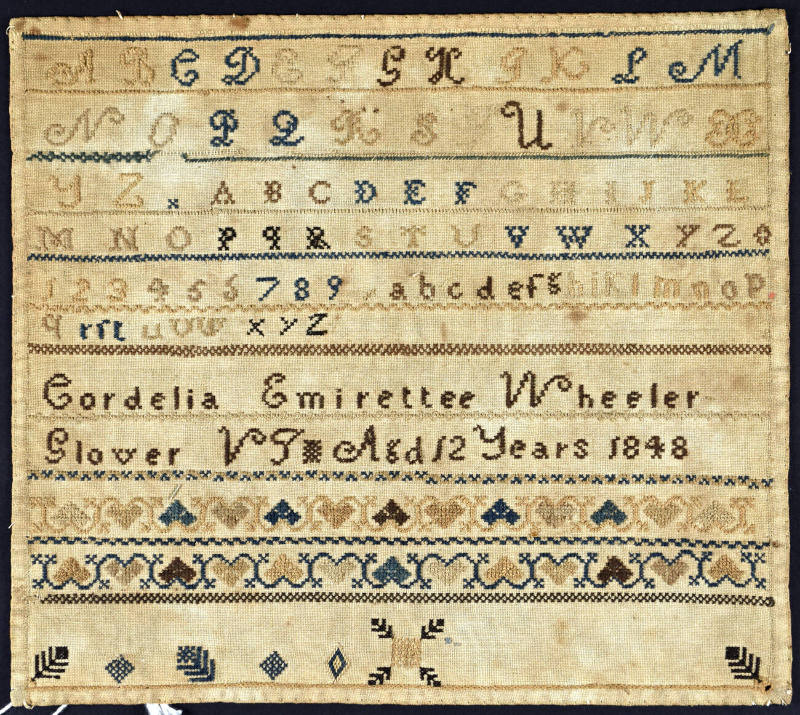 A B C D E F G H I K L M
N O P Q R S T U V W X
Y Z A B C D E F G H I J K L
M N O P Q R S T U V W X Y Z
1 2 3 4 5 6 7 8 9 a b c d e f g h i k l m n o p
q r ſ t u v w x y z
Cordelia Emirettee Wheeler
Glover VT Agd 12 Years 1848